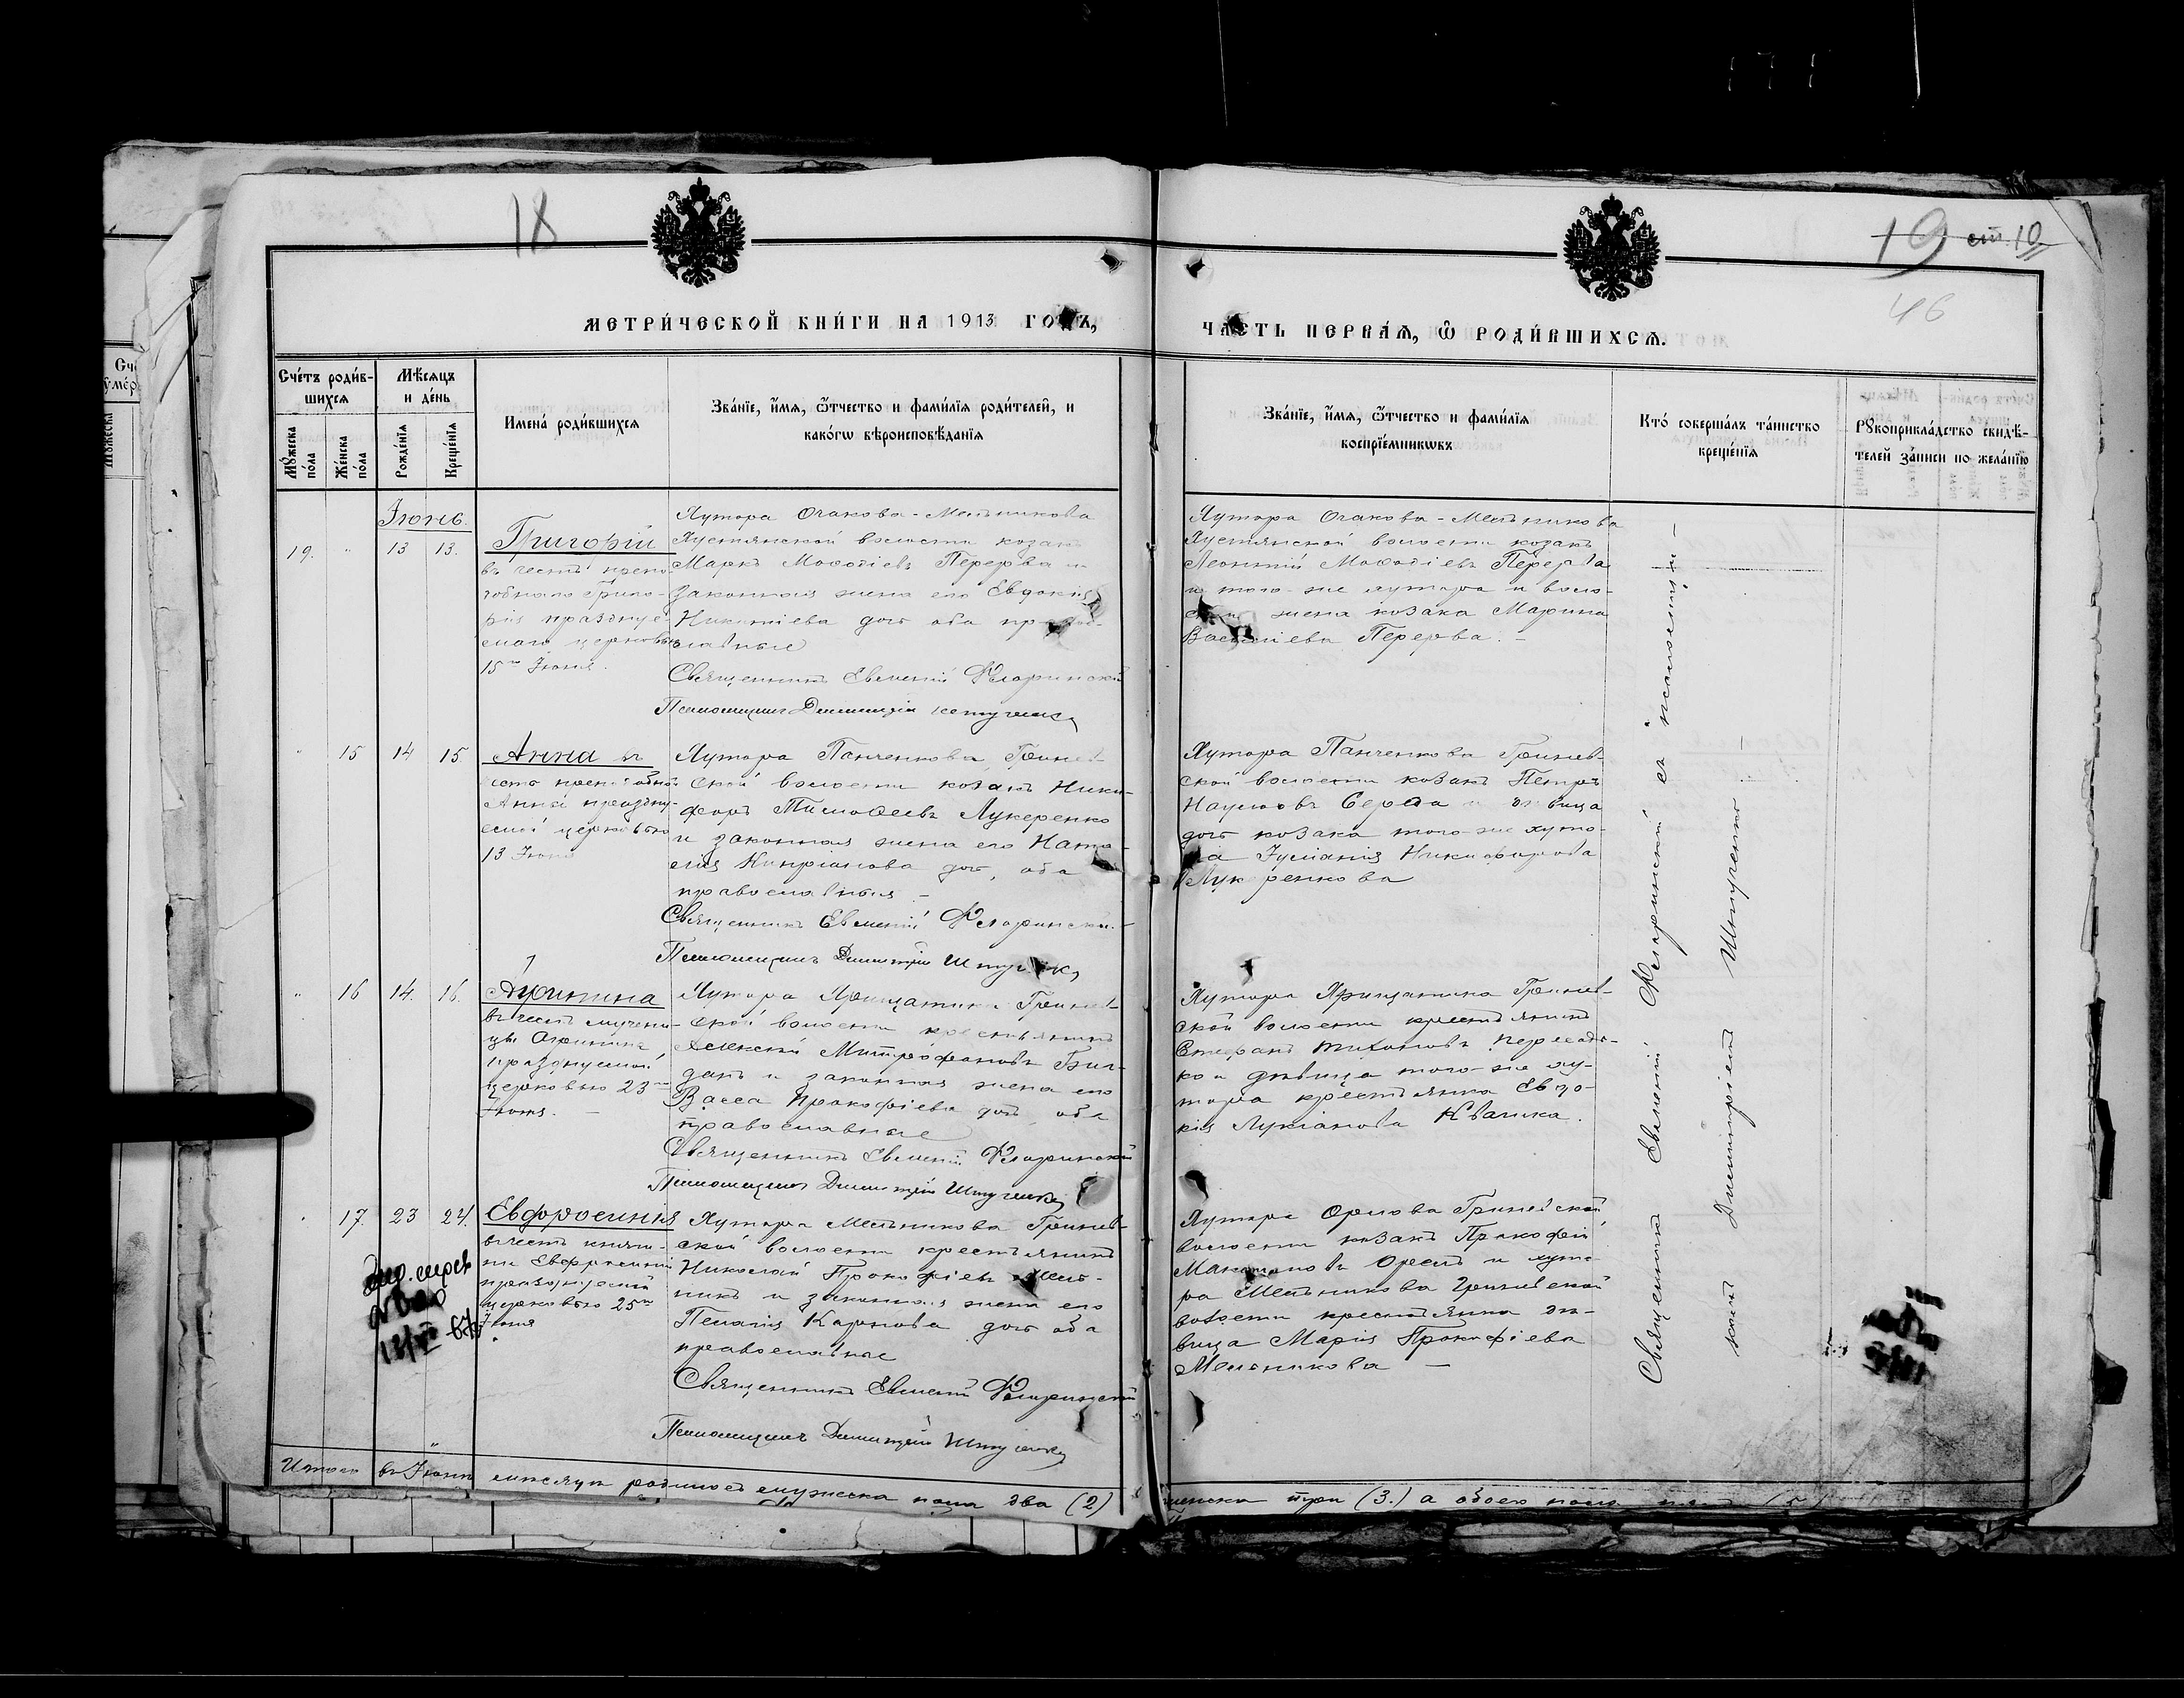 18
19 ст. 10
46
МЕТРИ́ЧЕСКОЙ КНИ́ГИ НА 1913 ГОДЪ,
ЧАСТЬ ПЕРВА́Ѧ, Ѽ РОДИ́ВШИХСѦ.
Сче́тъ роди́в-
шихсѧ
Мѣ́сѧцъ
и де́нь
Мꙋ́жеска
по́ла
Же́нска
по́ла
Рожде́нїѧ
Креще́нїѧ
Имена̀ роди́вшихсѧ
Зва́нїе, и҆́мѧ, ѻ҆́тчество и фами́лїѧ роди́телей, и
како́гѡ вѣроисповѣ́данїѧ
Зва́нїе, и҆́мѧ, ѻ҆́тчество и фами́лїѧ
воспрїе́мникѡвъ
Кто̀ соверша́лъ та́инство
креще́нїѧ
Рꙋкоприкла́дство свидѣ́-
телей за́писи по жела́нїю
Іюнь.
19. " 13 13.
Григорій
въ честь препо-
добнаго Григо-
рія празднуе-
маго церковью
15го Іюня.
Хутора Очакова-Мельникова
Хустянской волости козакъ
Маркъ Моѳодіевъ Перерва и
законная жена его Евдокія
Никитіева доч. оба правос-
лавные
Священникъ Евменій Флоринскій
Псаломщикъ Димитрій
Хутора Очакова-Мельникова
Хустянской волости козакъ
Леонтій Моѳодіевъ Перерва
и того-же хутора и воло-
сти жена козака Марина
Василіева Перерва. —
" 15 14 15.
Анна въ
честь преподобной
Анны праздну-
емой церковью
13 Іюня
Хутора Панченкова, Гринев-
ской волости козакъ Ники-
форъ Тимоѳеевъ Лукеренко
и законная жена его Ната-
лія Кипріанова доч., оба
православныя —
Священникъ Евменій Флоринскій
Псаломщикъ Димитрій Штученко
Хутора Панченкова Гринев-
ской волости козакъ Петръ
Наумовъ Середа и дѣвица
дочь козака того-же хуто-
ра Іуліанія Никифорова
Лукеренкова
" 16 14. 16.
Агрипина
въ честь мучени-
цы Агрипины
празднуемой
церковью 23го
Іюня. —
Хутора Хрищатика Гринев-
ской волости крестьянинъ
Алексій Митрофановъ
и законная жена его
Васса Прокофіева доч. оба
православные
Священникъ Евменій Флоринскій
Псаломщикъ Димитрій Штученко
Хутора Хрищатика Гринев-
ской волости крестьянинъ
Стефанъ Тихоновъ
и дѣвица того-же ху-
тора крестьянка Евдо-
кія Лукіанова Квачика.
" 17. 23 24.
Евфросинія
въ честь княги-
ни Евфросиніи
празднуемой
церковью 25го
Іюня
Хутора Мельникова Гринев-
ской волости крестьянинъ
Николай Прокофіевъ Мель-
никъ и законная жена его
Пелагія Карпова доч. оба
православные
Священникъ Евменій Флоринскій
Псаломщикъ Димитрій Штученко
Хутора Орлова Гриневской
волости козакъ Прокофій
Максимовъ Орелъ и хуто-
ра Мельникова Гриневской
волости крестьянка дѣ-
вица Марія Прокофіева
Мельникова —
Священникъ Евменій Флоринскій съ псаломщи-
комъ Димитріемъ Штученко —
Итого въ Іюнѣ мѣсяцѣ родилось мужеска пола два (2)
женска три (3.) а обоего пола пять (5)